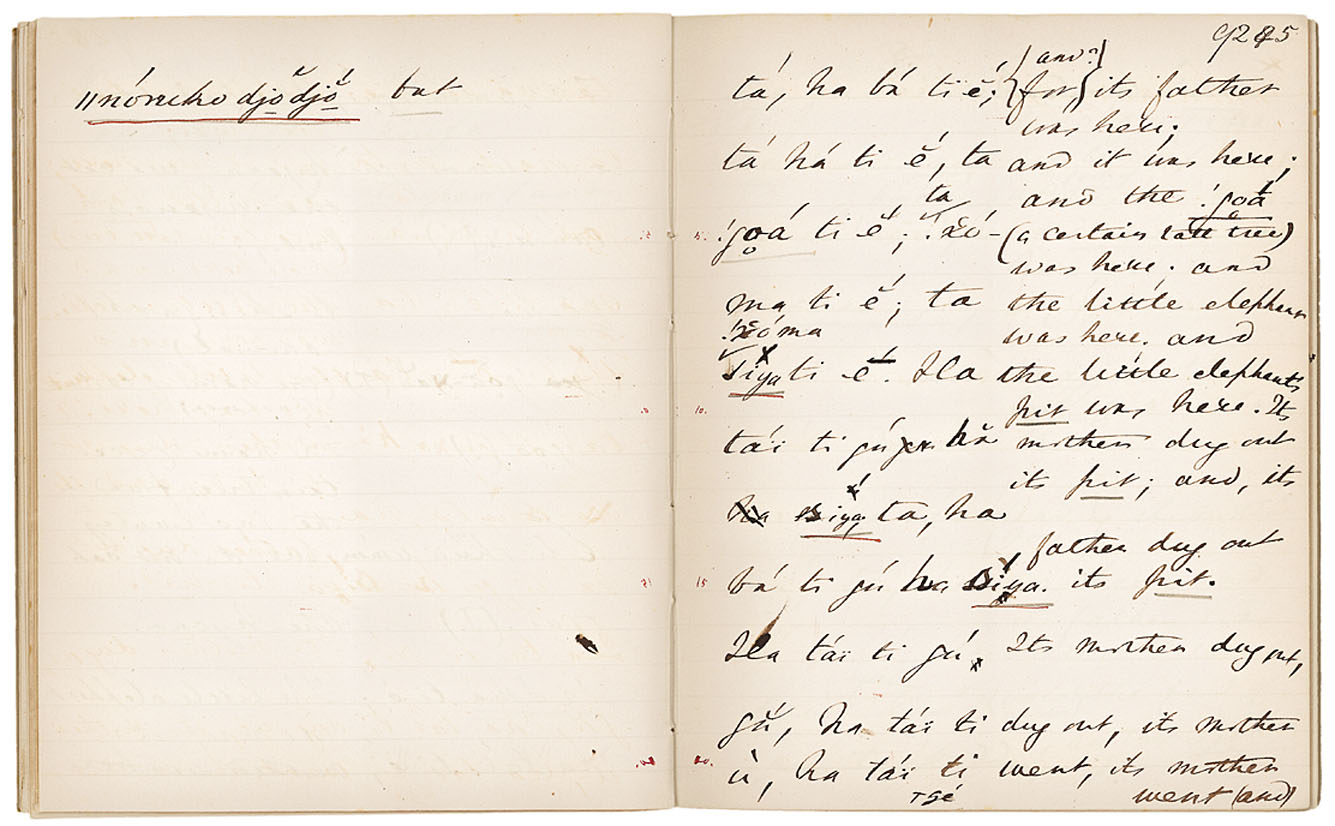 ǁnórruko djŏ djŏ́ but
9245
tá, ha bá ti ĕ́; {for,} its father
{and?}
was here;
tá há ti ĕ́, ta and it was here;
and the !goá
ta
!goá ti ĕ́; !xó- (a certain tall tree)
was here; and
ma ti ĕ́; ta the little elephant
!xóma was here. and
siya ti ĕ́. Ha the little elephant's
pit was here. Its
10.
tái ti gú hă mother dug out
its pit; and, its
siya, ta, ha
father dug out
15
bá ti gú ha siya. its pit.
Ha tái ti gú, Its mother dug out,
gŭ, ha tái ti dug out, its mother
20.
ù, ha tái ti went, its mother
tsé went (and)